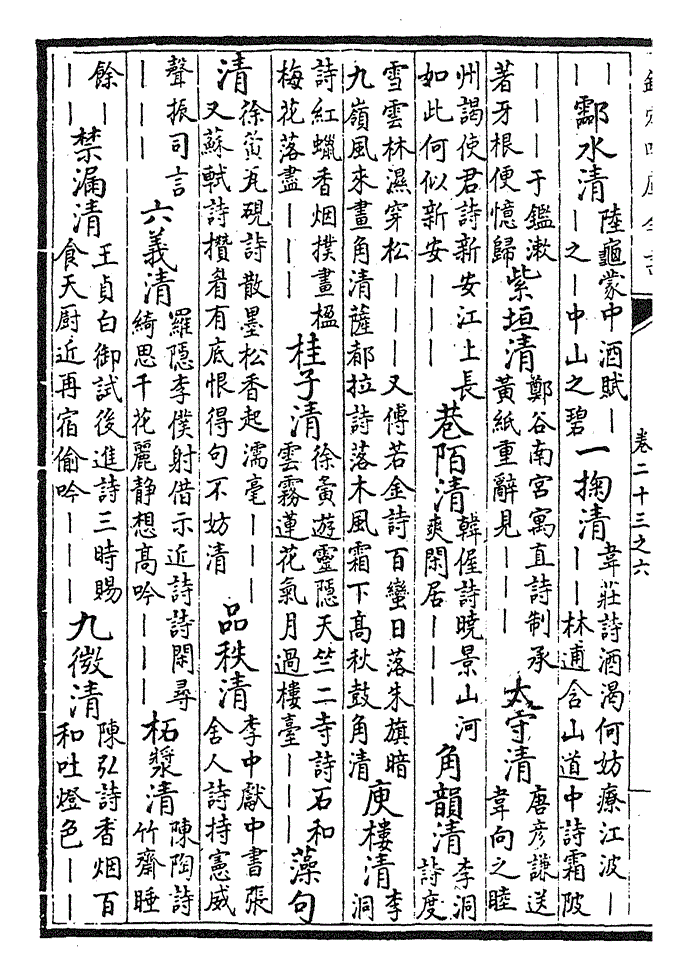 欽定四庫全書
卷二十三之六
｜
｜｜
酃水清
陸龜蒙中酒賦｜
｜之｜中山之碧
一掬清
韋莊詩酒渴何妨療江波｜
｜｜林逋含山道中詩霜陂
｜｜｜于鑑漱
著牙根便憶歸
紫垣清
鄭谷南宮寓直詩制承
黃紙重辭見｜｜｜
太守清
唐彥謙送
韋向之睦
州謁使君詩新安江上長
如此何似新安｜｜｜
巷陌清
韓偓詩曉景山河
爽閑居｜｜｜
角韻清
李洞
詩度
雪雲林濕穿松｜｜｜又傅若金詩百蠻日落朱旗暗
九嶺風來畫角清薩都拉詩落木風霜下高秋鼓角清
庾樓清
李
洞
詩紅蠟香烟撲畫楹
梅花落盡｜｜｜
桂子清
徐夤遊靈隱天竺二寺詩石和
雲霧蓮花氣月過樓臺｜｜｜
藻句
清
徐夤瓦硯詩散墨松香起濡毫｜｜｜
又蘇軾詩攢眉有底恨得句不妨清
品秩清
李中獻中書張
舍人詩持憲威
聲振司言
｜｜｜
六義清
羅隱李僕射借示近詩詩閑尋
綺思千花麗静想高吟｜｜｜
柘漿清
陳陶詩
竹齋睡
餘｜
｜｜
禁漏清
王貞白御試後進詩三時賜
食天廚近再宿偷吟｜｜｜
九微清
陳弘詩香烟百
和吐燈色｜｜